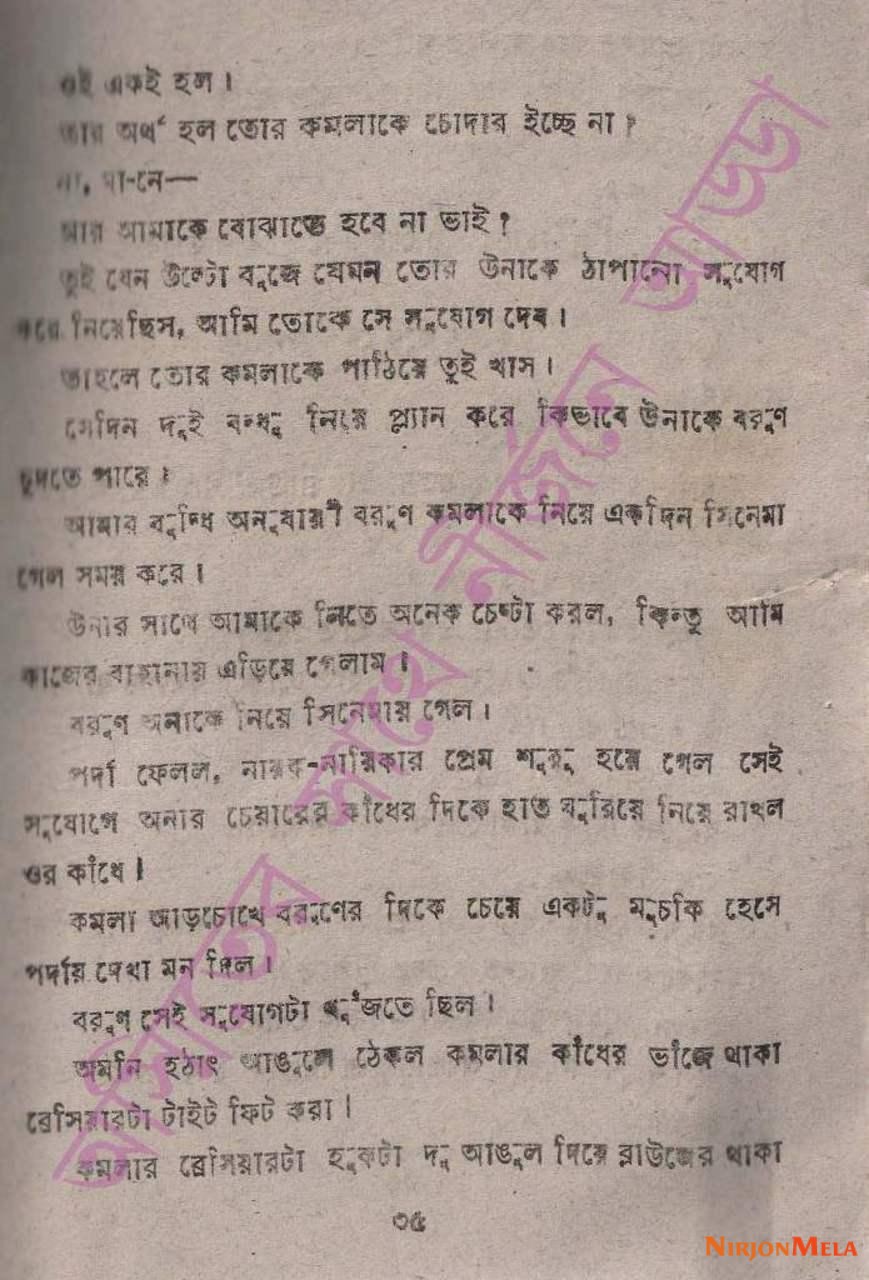 ওই একই হল।
তার অর্থ হল তোর কমলাকে চোদার ইচ্ছে না?
না, মা-নে—
আর আমাকে বোঝাতে হবে না ভাই?
তুই যেন উল্টো বুজে যেমন তোর উনাকে ঠাপানো সুযোগ
করে নিয়েছিস, আমি তোকে সে সুযোগ দেব।
তাহলে তোর কমলাকে পাঠিয়ে তুই খাস।
সেদিন দুই বন্ধু নিয়ে প্ল্যান করে কিভাবে উনাকে বরুণ
চুদতে পারে।
আমার বুদ্ধি অনুযায়ী বরুণ কমলাকে নিয়ে একদিন সিনেমা
গেল সময় করে।
উনার সাথে আমাকে নিতে অনেক চেষ্টা করল, কিন্তু আমি
কাজের বাহানায় এড়িয়ে গেলাম।
বরুণ অনাকে নিয়ে সিনেমায় গেল।
পর্দা ফেলল, নায়ক-নায়িকার প্রেম শুরু হয়ে গেল সেই
সুযোগে অনার চেয়ারের কাঁধের দিকে হাত ঘুরিয়ে নিয়ে রাখল
ওর কাঁধে।
কমলা আড়চোখে বরুণের দিকে চেয়ে একটু মুচকি হেসে
পর্দায় দেখা মন দিল।
বরুণ সেই সুযোগটা খুঁজতে ছিল।
অমনি হঠাৎ আঙুলে ঠেকল কমলার কাঁধের ভাঁজে থাকা
ব্রেসিয়ারটা টাইট ফিট করা।
কমলার ব্রেসিয়ারটা হুকটা দু আঙুল দিয়ে ব্লাউজের থাকা
৩৫
আসিতেব পথে নির্জনে আড্ডা
NIRJONMELA